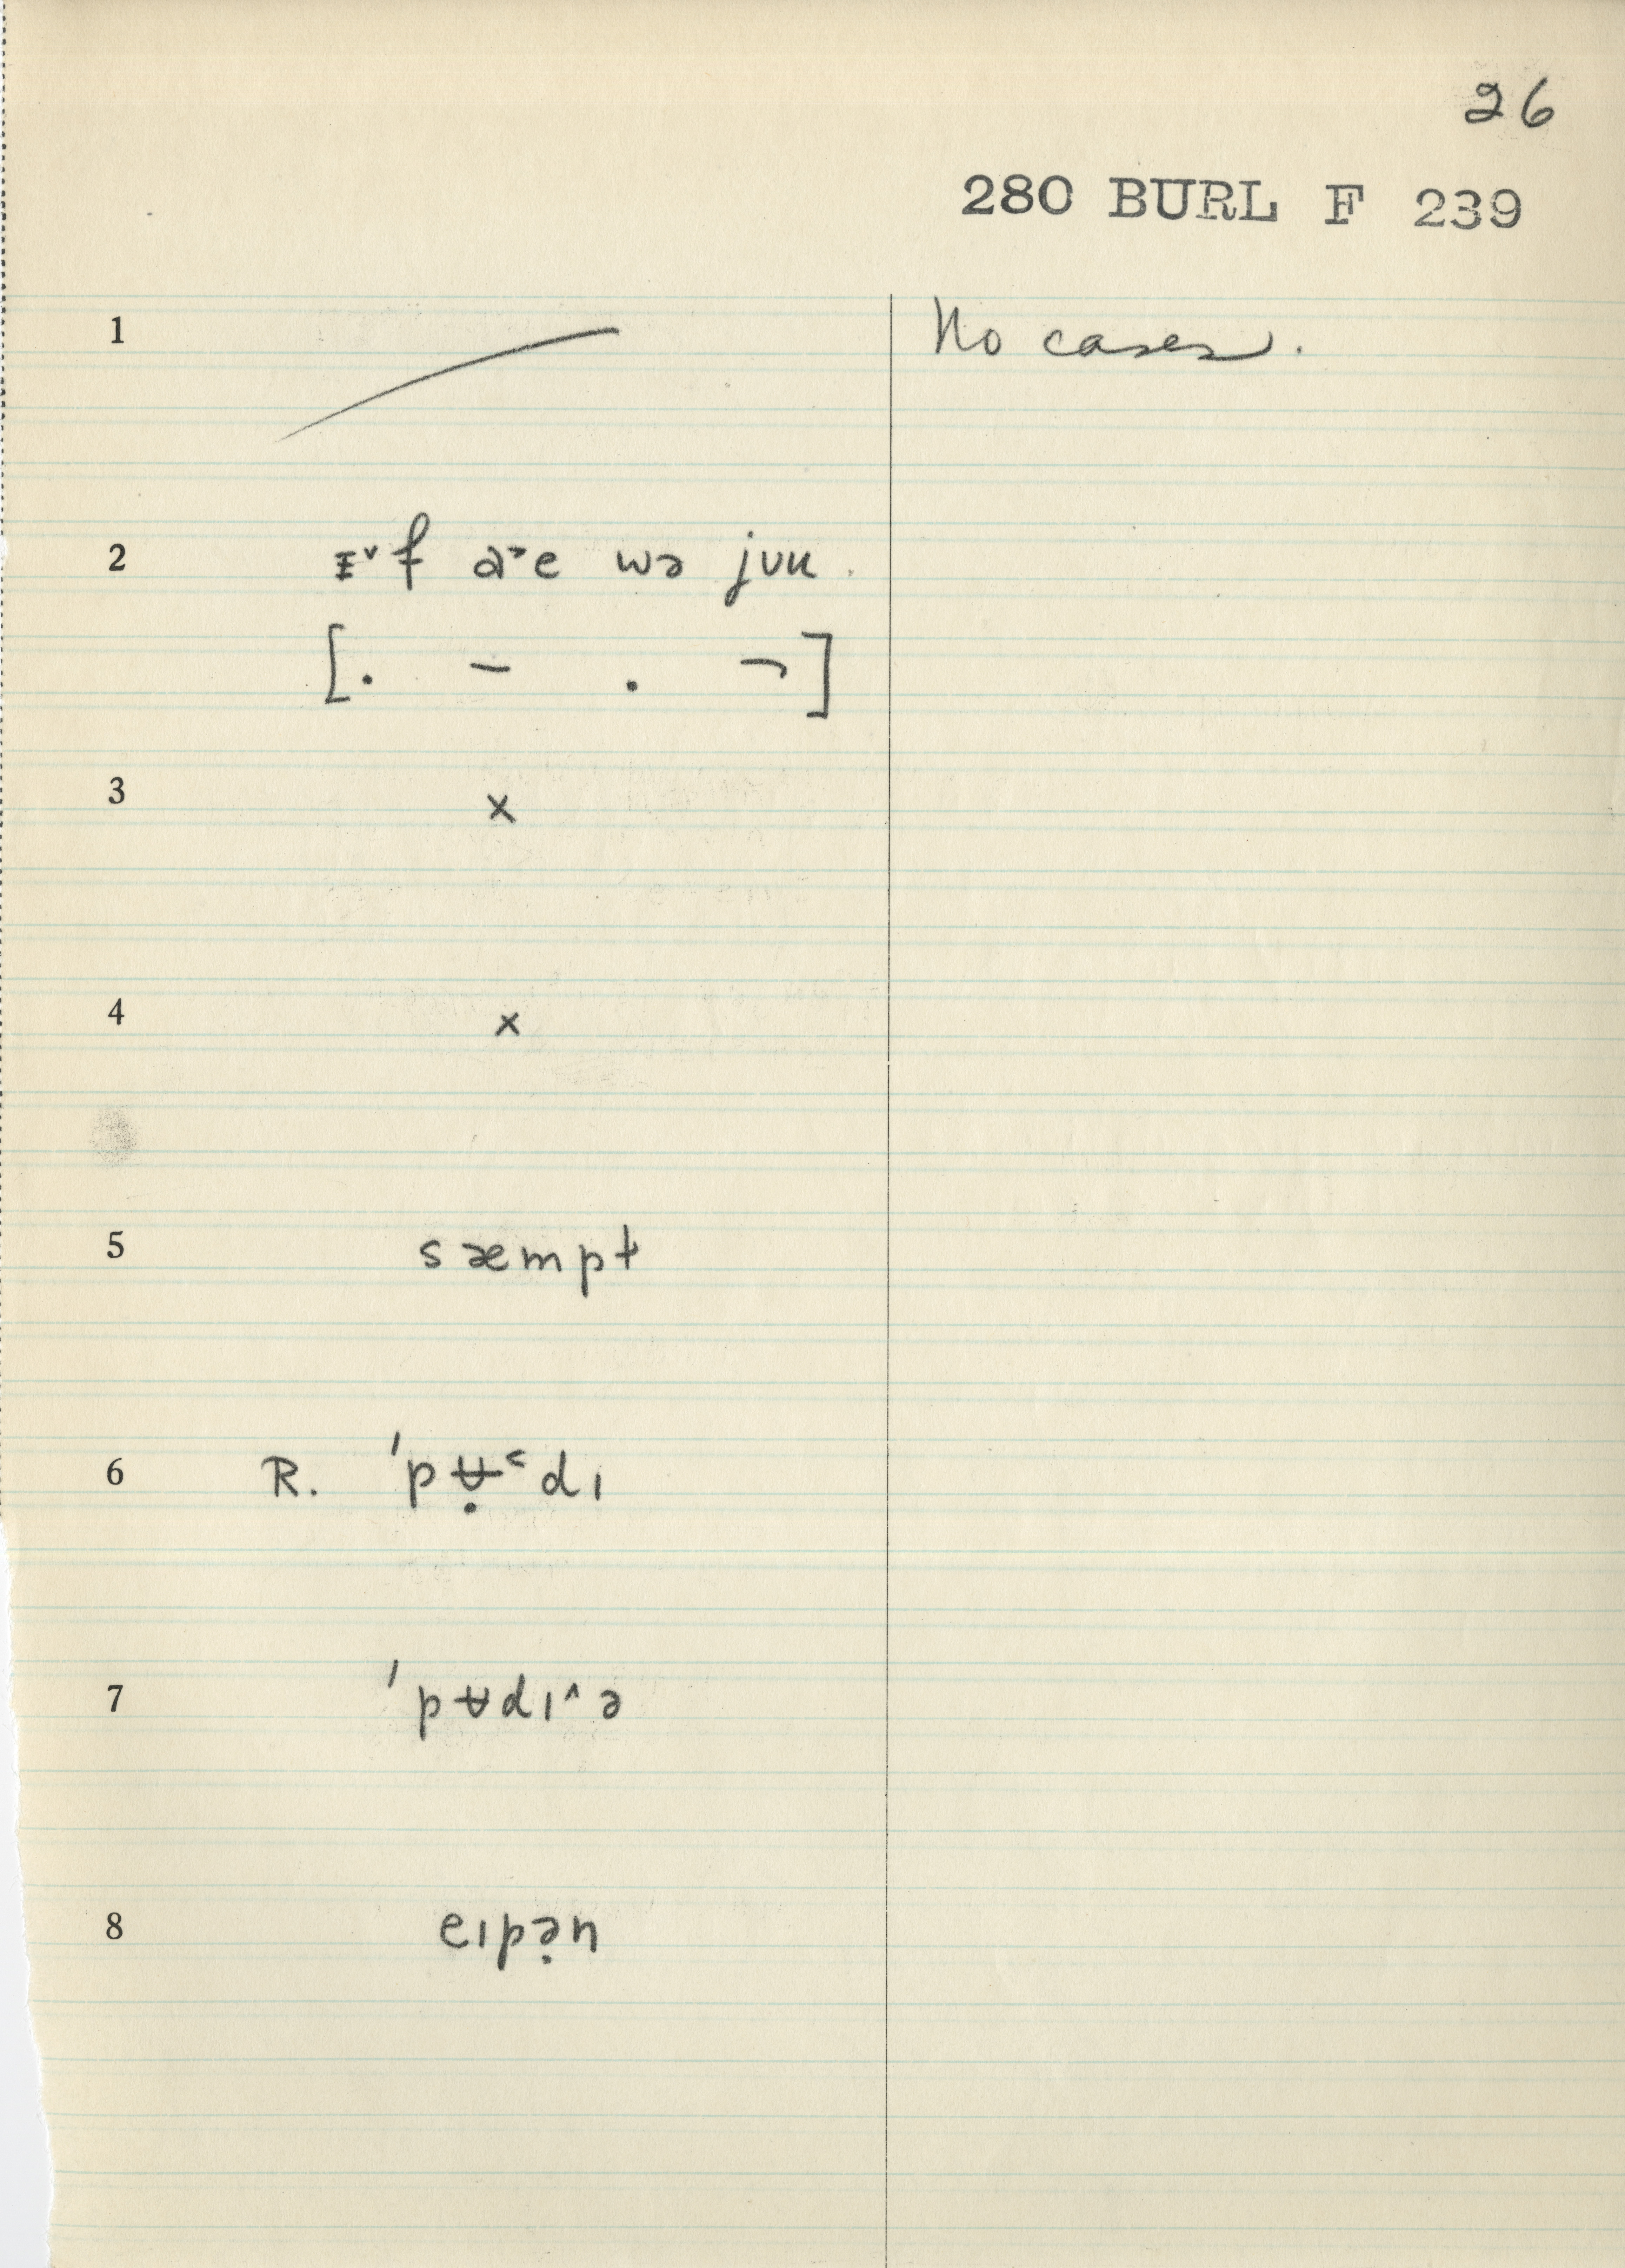 26
280 BURL F 239
1 No cases.
2 ɪ˅f a˃e wə jʊu
[. – . ¬]
3 x
4 x
5 sæmpt
6 R. 'pʉ̣˂dɪ
7 'pʉdɪ˄ə
8 eɪpə̣n